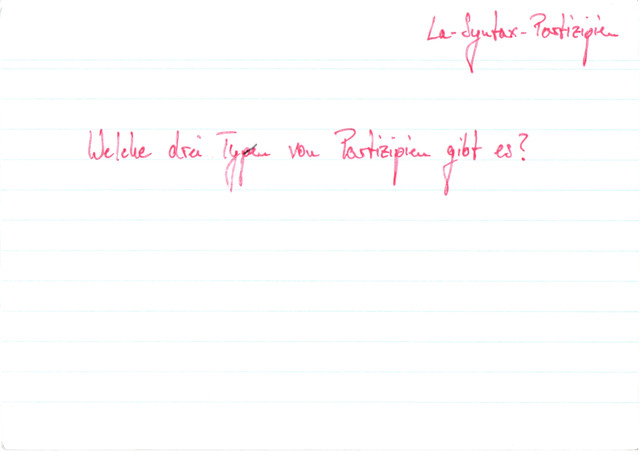 La-Syntax-Partizipien
Welche drei Typen von Partizipien gibt es?